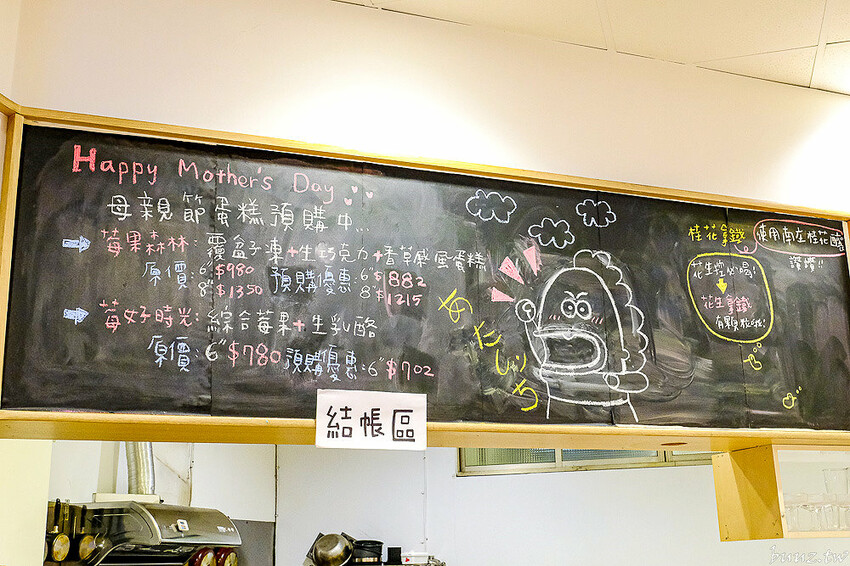 Happy Mother's Day
母親節蛋糕預購中...
莓果森林：覆盆子凍+生巧克力+香草戚風蛋糕
原價：6"$980 預購優惠：6"$882
8"$1350 8"$1215
莓好時光：綜合莓果+生乳酪
原價：6"$780 預購優惠：6"$702
結帳區
桂花拿鐵
使用南庄桂花釀
讚讚!!
花生控必喝!
花生拿鐵
有顆粒啦!